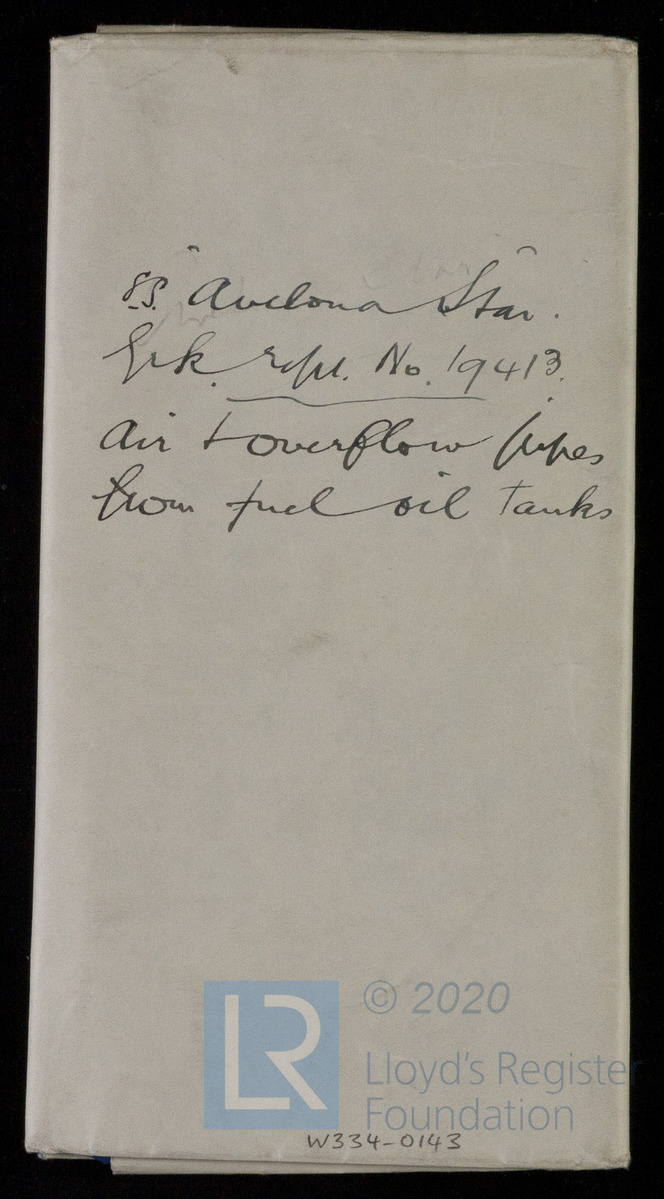 SS. "Avelona Star".
Grk. rept. No. 19413.
Air & overflow pipes
from fuel oil tanks
LR
© 2020
Lloyd's Register
Foundation
W334-0143